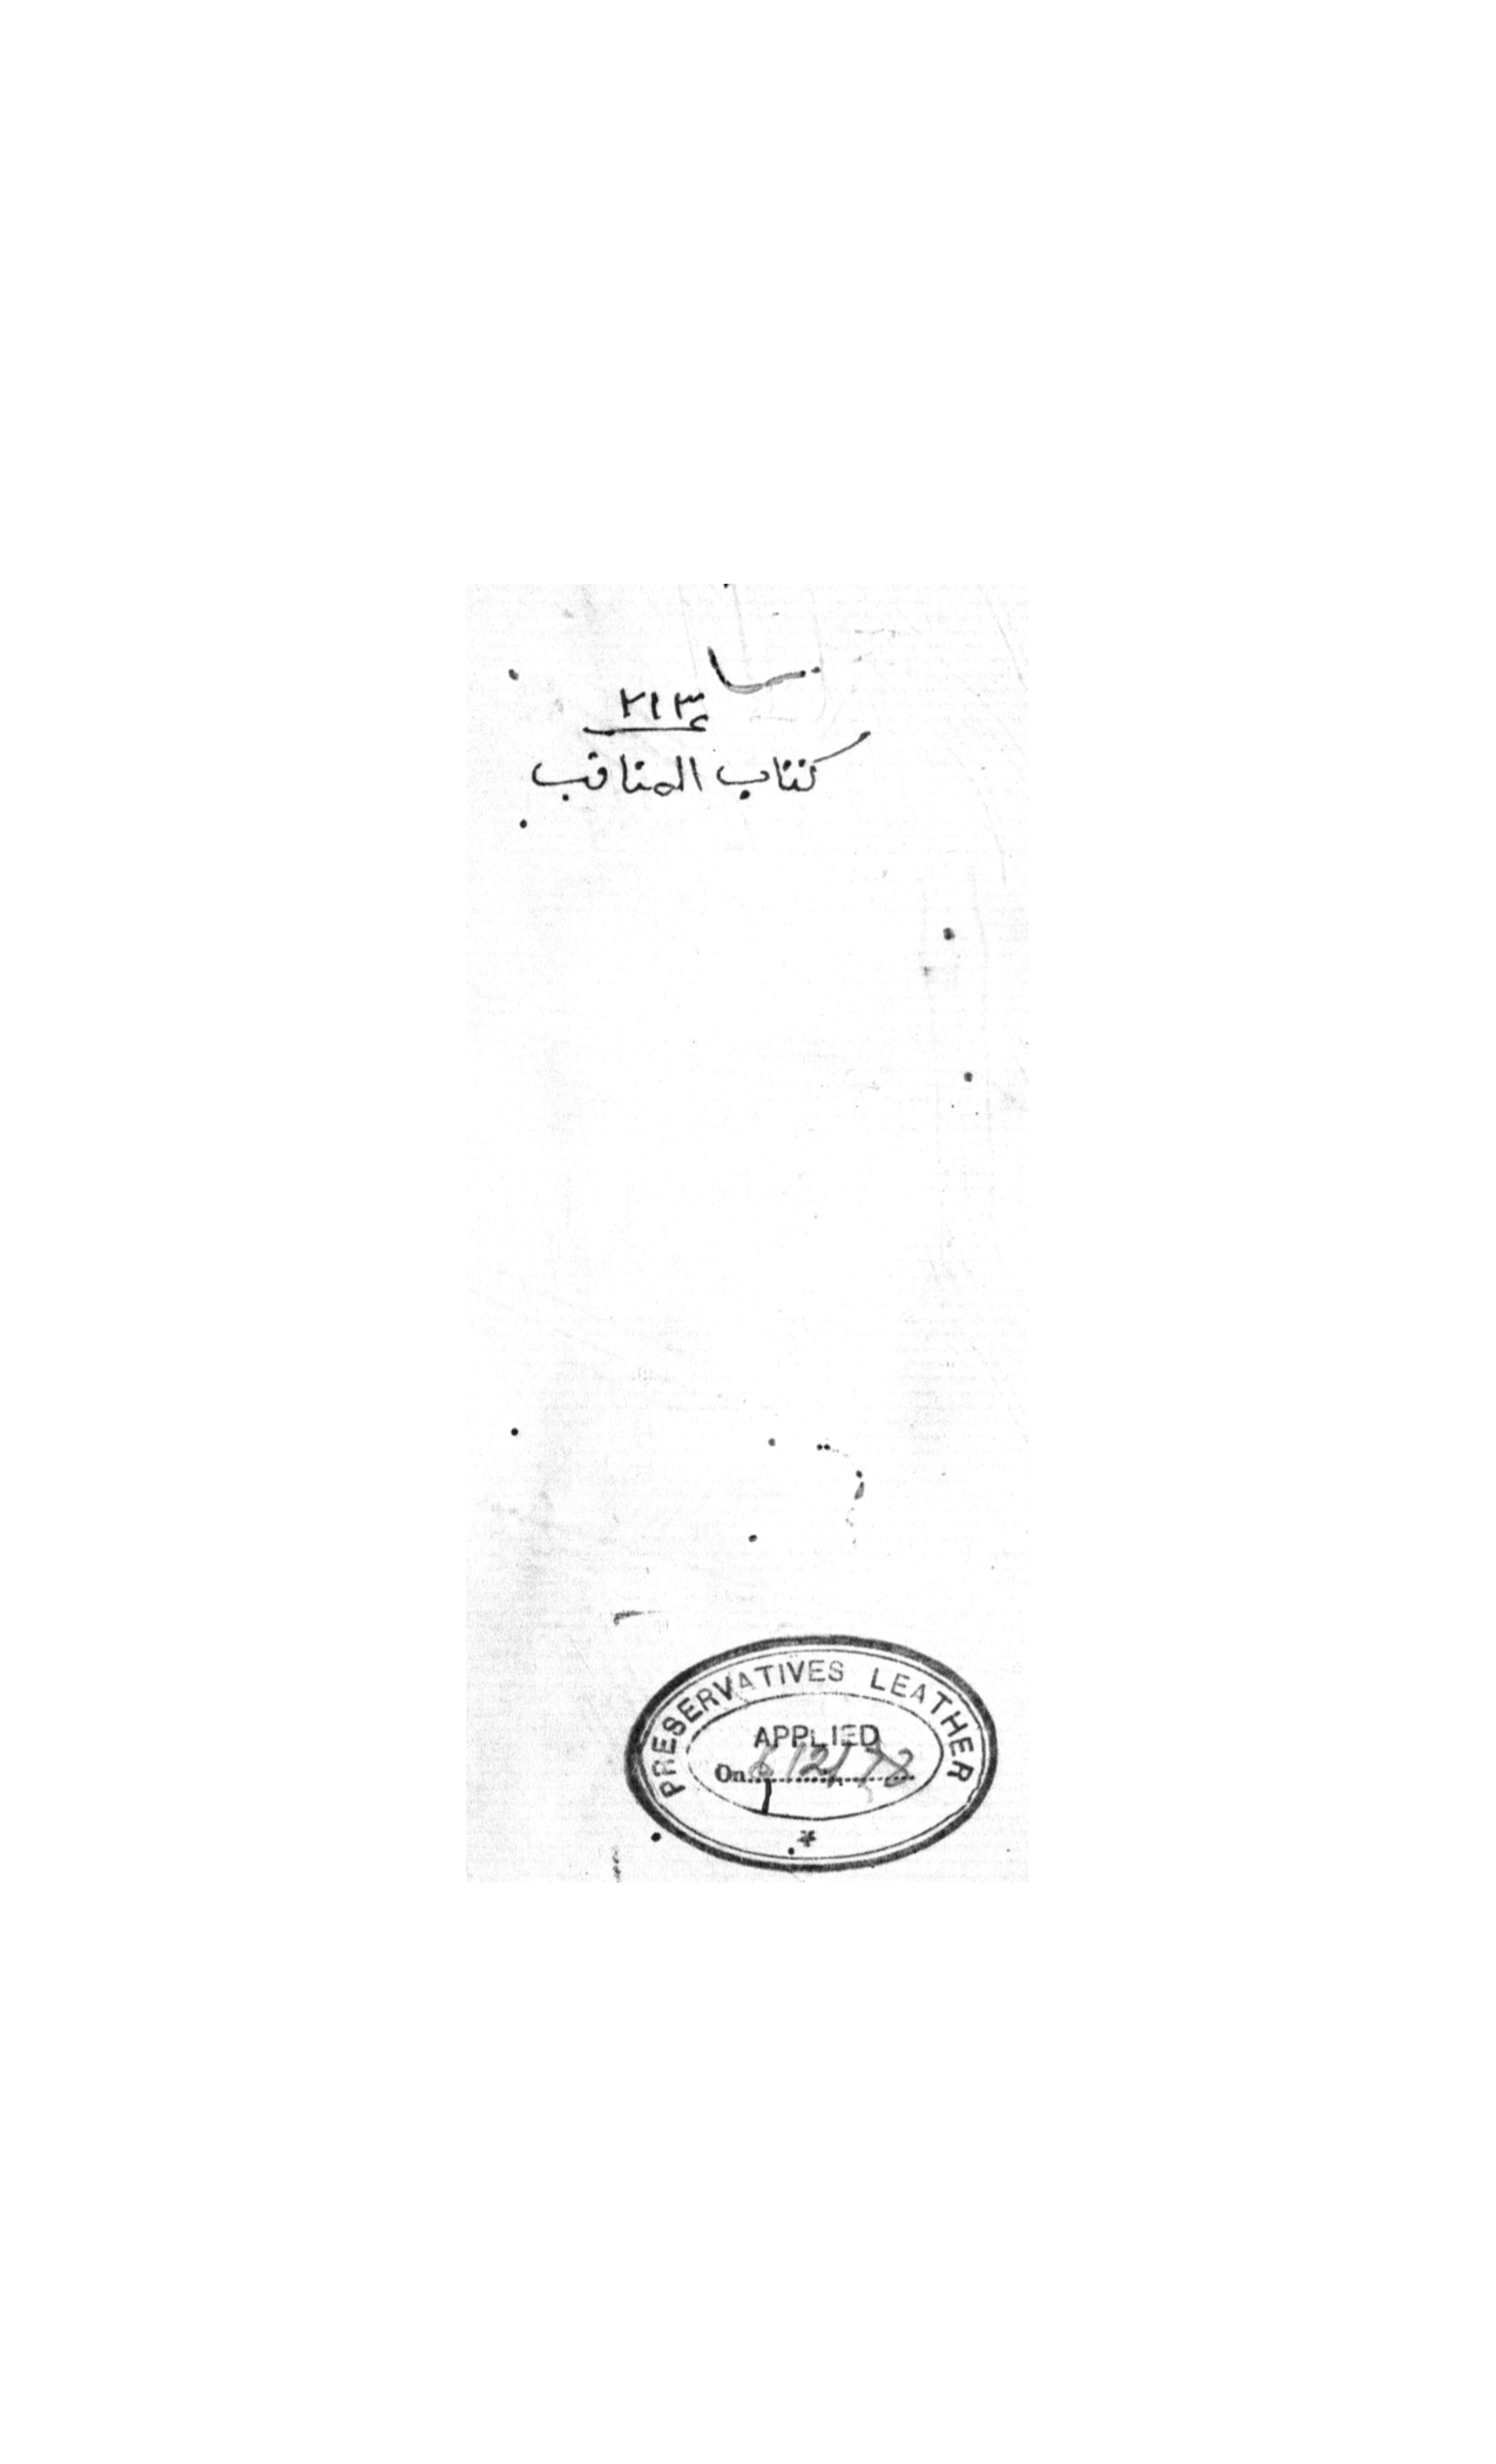 ٢١٣
كتاب المناقب
PRESERVATIVES LEATHER
APPLIED
On 12